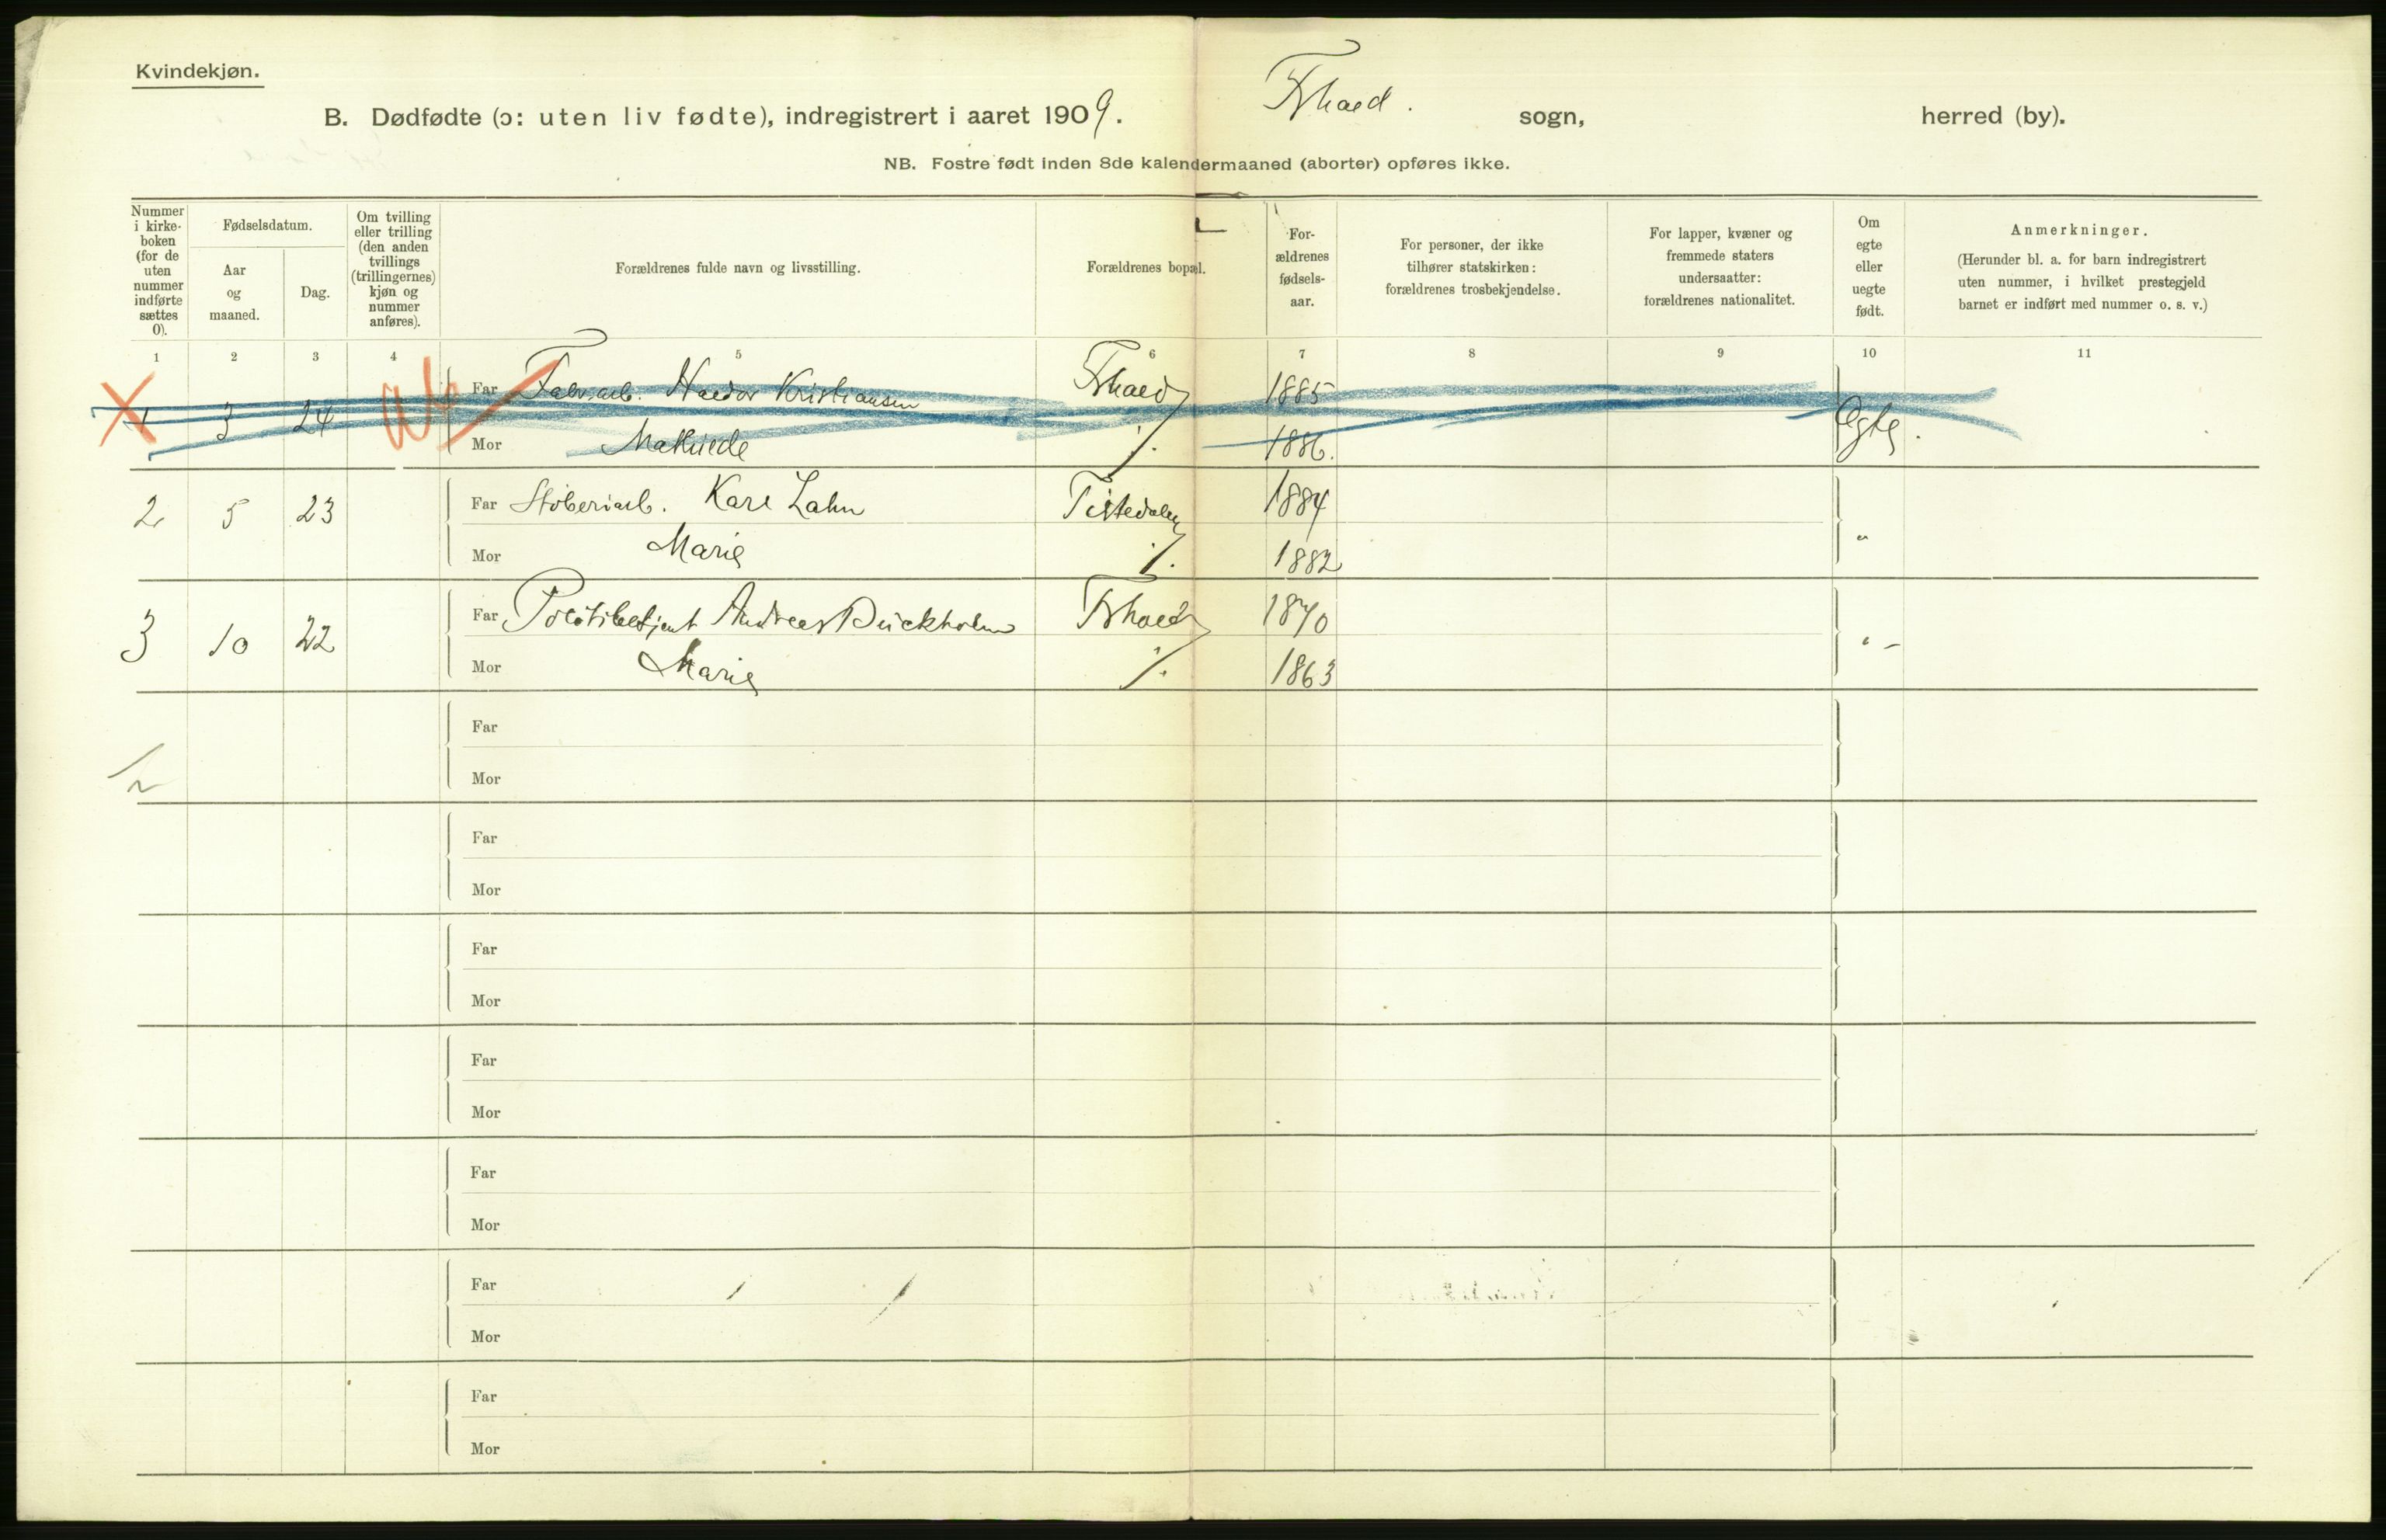 Kvindekjøn.
B. Dødfødte (ɔ: uten liv fødte), indregistrert i aaret 1909. Frhald. sogn, herred (by).
NB. Fostre født inden 8de kalendermaaned (aborter) opføres ikke.
Nummer i kirke-boken (for de uten nummer indførte sættes 0).
Fødselsdatum.
Aar og maaned.
Dag.
Om tvilling eller trilling (den anden tvillings (trillingernes) kjøn og nummer anføres).
Forældrenes fulde navn og livsstilling.
Forældrenes bopæl.
For-ældrenes fødsels-aar.
For personer, der ikke tilhører statskirken: forældrenes trosbekjendelse.
For lapper, kvæner og fremmede staters undersaatter: forældrenes nationalitet.
Om egte eller uegte født.
Anmerkninger.
(Herunder bl. a. for barn indregistrert uten nummer, i hvilket prestegjeld barnet er indført med nummer o. s. v.)
1 2 3 4 5 6 7 8 9 10 11
1 3 24 Far Fabr.arb. Haldor Kristiansen Frhald 1885 Ægte.
Mor Mathilde 1886.
2 5 23 Far Støberiarb. Karl Lahn Tistedalen 1884 "
Mor Marie 1882
3 10 22 Far Politibetjent Andreas Frhald 1870 "
Mor Marie 1863
Far
Mor
2
Far
Mor
Far
Mor
Far
Mor
Far
Mor
Far
Mor
Far
Mor